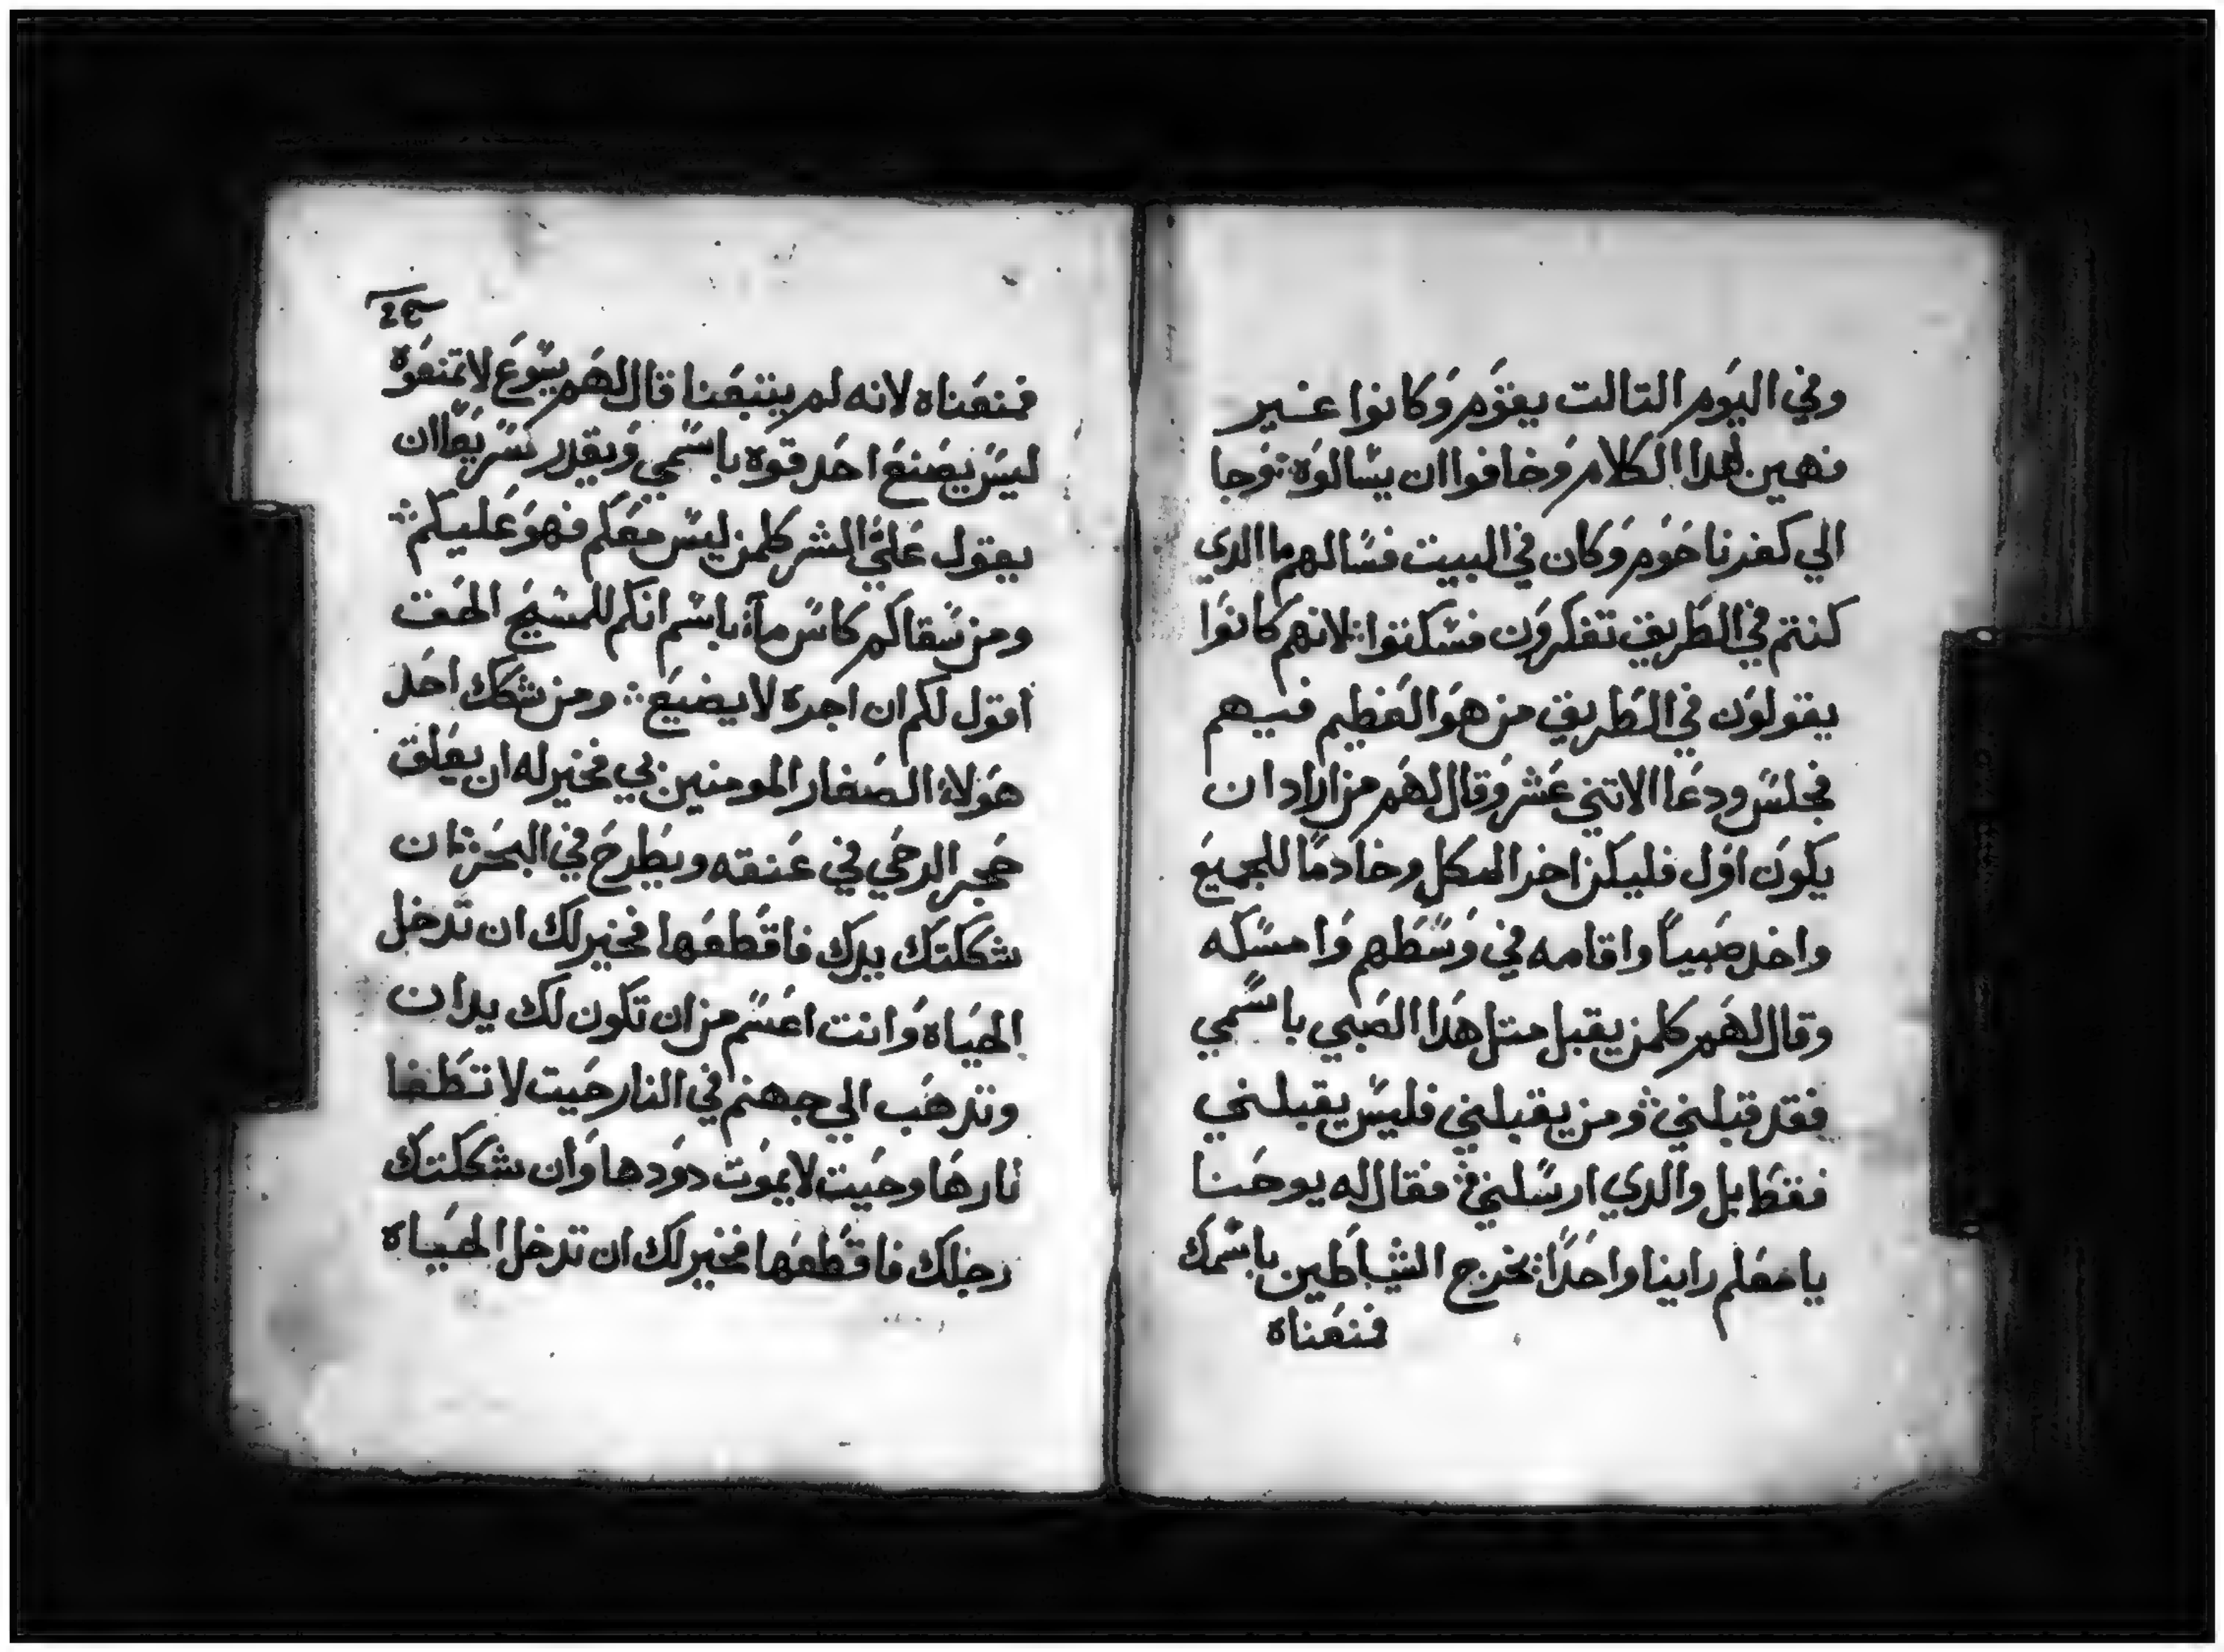 وفي اليَوم التالت يقوَم وَكانوا غير
فهمين لهدا الكلام وَخافوا ان يسالوَه ∴ وَجا
الي كفرناحَوم وَكان في البيت فسالهم ما الدي
كنتم في الطَريق تفكروَن فسكتوا ∴ لانهم كانوَا
يقولوَن في الطَريق من هوَ العَظيم فيهم
فجلسَ ودعَا الاتني عَشر وَقال لهَم من اراد ان
يكوَن اوَل فليكن اخر الكل وخادمًا للجميعَ
واخد صَبياً واقامه في وَسَطهم وَامسَكه
وقال لهَم كلمن يقبل متل هَدا الصَبي باسَمي
فقد قبلني ∴ وَمن يقبلني فليسَ يقبلني
فقطَ بل والدي ارسَلني ∴ فقال له يوحَنا
يا معَلم راينا واحَدًا ∴ يخرج الشياطَين باسَمك
فمنعَناه
فمنعَناه لانه لم يتبعَنا قال لهَم يسَوعَ لا تمنعَوَه
ليسَ يصَنعَ احَد قوَه باسَمي وَيقدر سَريعَاً ان
يقول عَليَّ الشر كلمن ليسَ معَكم فهوَ عَليكم ∴
ومن سَقاكم كاسَ مآء باسَم انكم للمسَيحَ الحَق
اقول لكم ان اجره لا يضيعَ ∴ ومن شكك احَد
هَولاء الصَغار المومنين بي فخير له ان يعَلق
حَجر الرحَي في عَنقه ويطَرحَ في البحَر ∴ ان
شككتك يدك فاقطَعَها فخير لك ان تدخل
الحَياه وَانت اعَسَم من ان تكون لك يدان
وتدهَب الي جهنم في النار حَيت لا تطَفا
نارهَا وحَيت لا يموَت دوَدها وَان شككتك
رجلك فاقطَعَها فخير لك ان تدخل الحَياه